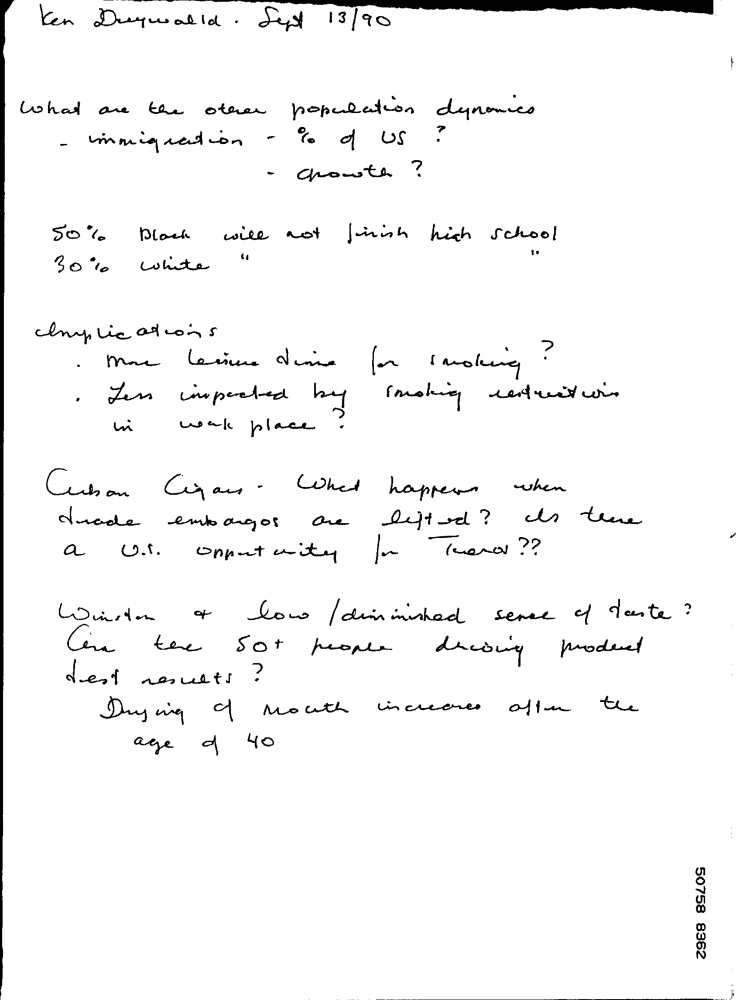 Ken Sept 13/90
What are the other population dynamics
- immigration - % of US ?
- growth ?
50% Black will not finish high school
30% white " "
Implications
. More leisure time for smoking ?
. Less impacted by smoking restrictions
in work place ?
Cuban Cigars - What happens when
trade embargos are lifted? Is there
a U.S. opportunity for ??
Winston & low/diminished sense of taste ?
Are the 50+ people driving product
test results ?
Drying of mouth increases after the
age of 40
50758 8362